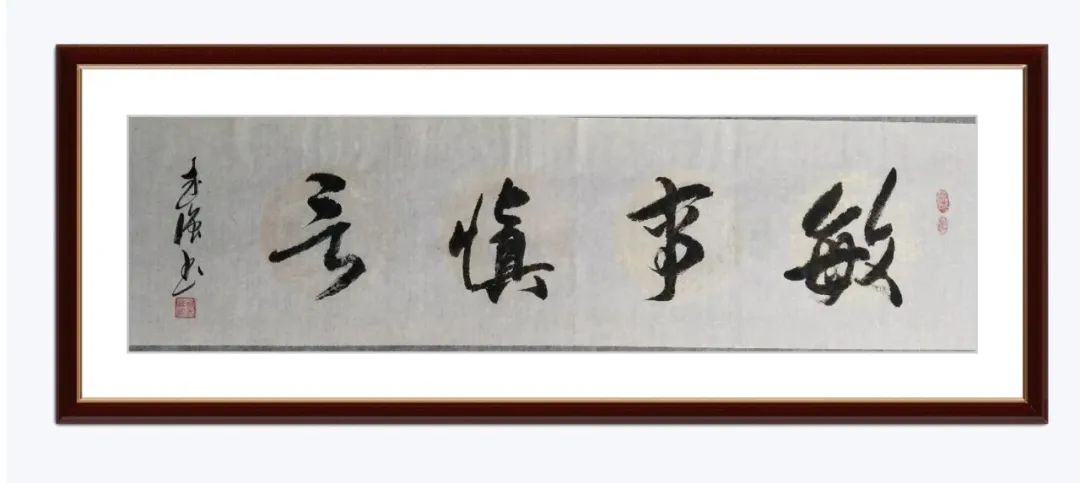 敏事慎言
强书